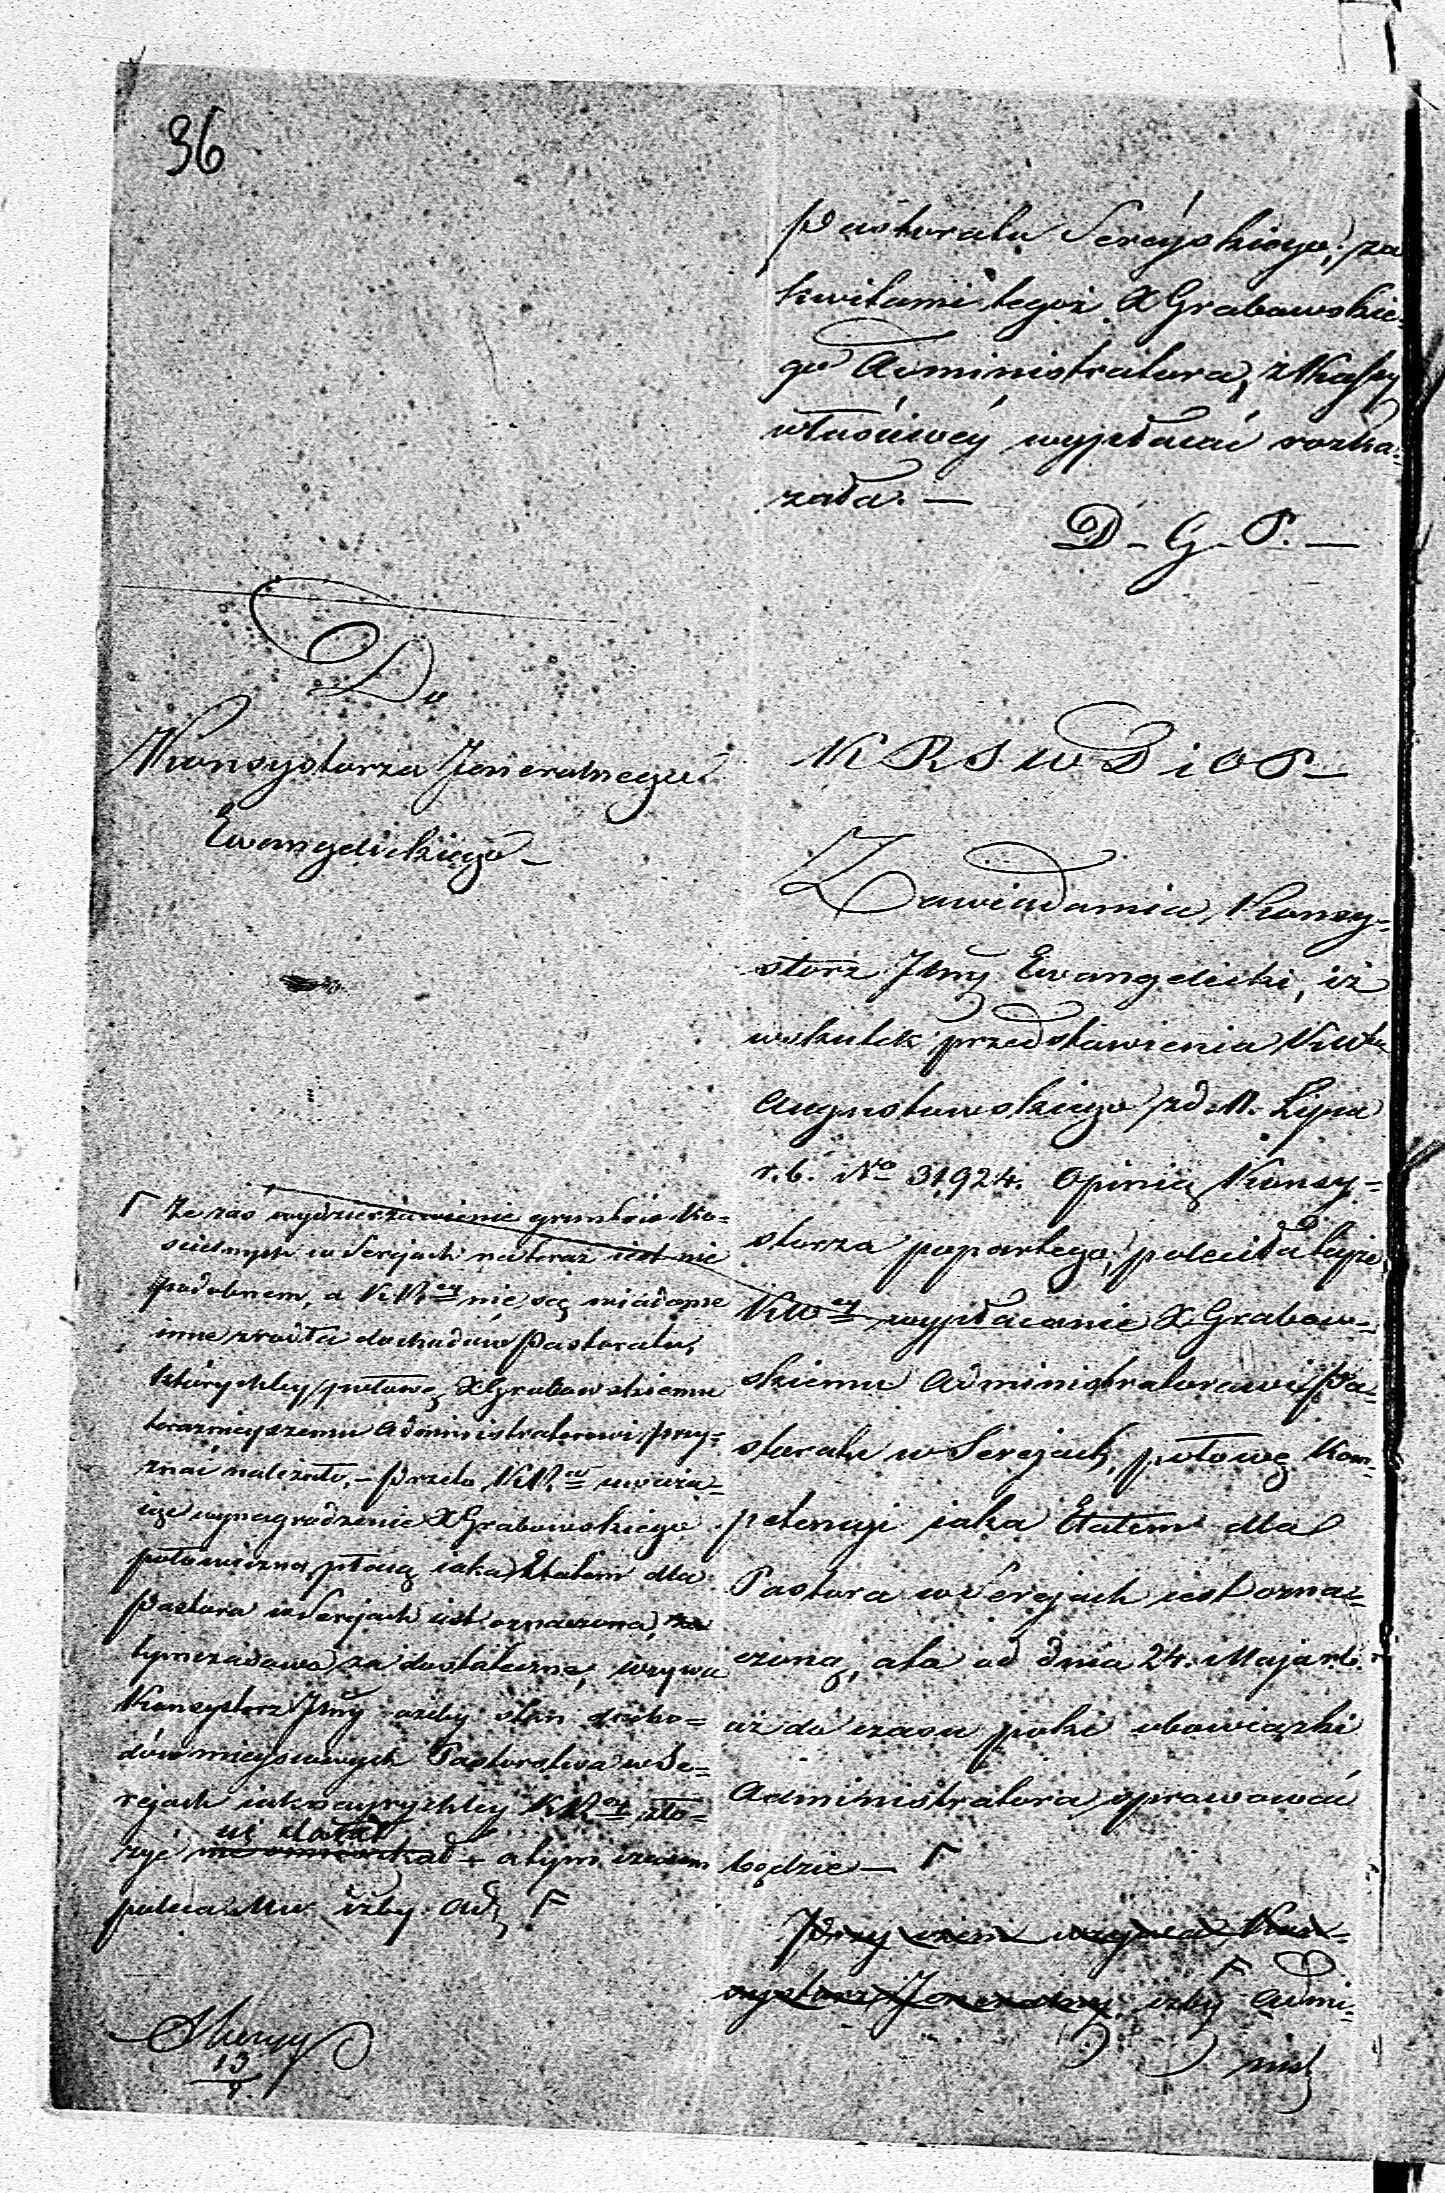 36
Pastoratu Sereyskiego, za
kwitami tegoż X Grabowskie-
go Administratora, z Kassy
właściwéy wypłacać rozka-
zała. —
D - G - P. —
Do
Konsystorza Jeneralnego
Ewangelickiego —
K R S W D i O P —
Zawiadamia Konsy-
storz Jlny Ewangelicki, iż
wskutek przedstawienia KWtwa
Augustowskiego z d. 11. Lipca
r. b. No 31,924. Opinią Konsy-
storza popartego, poleciła teyże
KWey wypłacanie X Grabow-
skiemu Administratorowi Pa-
storatu w Serejach, połowę Kom-
petencyi iaka Etatem dla
Pastora w Serejach iest ozna-
czoną, a to od dnia 24. Maja r. b.
aż do czasu póki obowiązki
Administratora sprawować
będzie — Γ
Przy czem wzywa Kon-
systorz Jeneralny, iżby F Admi-
nist
Γ Że zaś wydzierżawienie gruntów Ko-
ścielnych w Serejach na teraz iest nie
podobnem, a KRey nie są wiadome
inne źródła dochodów Pastoratu,
którychby połowę X Grabowskiemu
teraznieyszemu Administratorowi przy-
znać należało, — przeto KRey uważa-
iąc wynagrodzenie X Grabowskiego
połowiczną płacą iaka Etatem dla
Pastora w Serejach iest oznaczona,
tymczasowo za dostateczne, wzywa
Konsystorz Jlny ażeby stan docho-
dów mieyscowych Pastorstwa w Se-
rejach iaknayrychley KRey zło-
się starał
żyć nie omieszkał — a tym czasem
poleca Mu iżby Adm F
13
8.